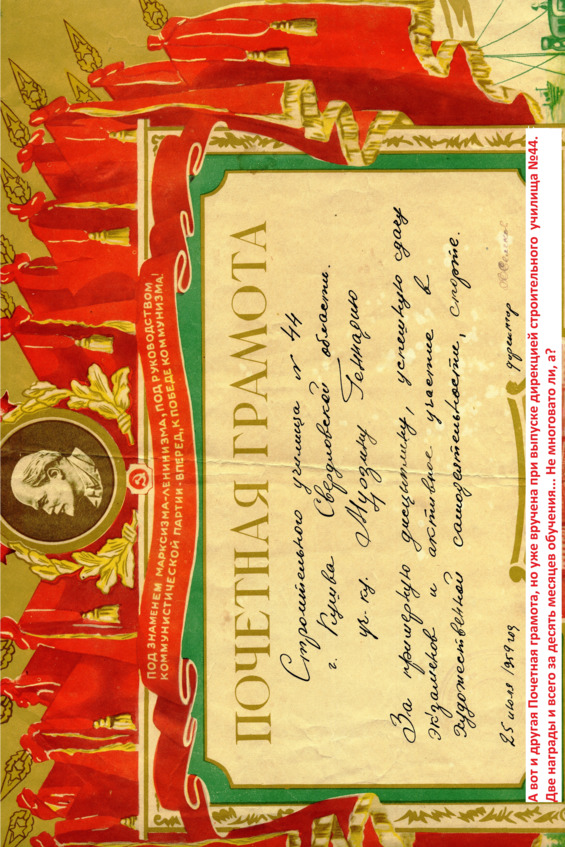 ПОД ЗНАМЕНЕМ МАРКСИЗМА-ЛЕНИНИЗМА, ПОД РУКОВОДСТВОМ
КОММУНИСТИЧЕСКОЙ ПАРТИИ-ВПЕРЕД, К ПОБЕДЕ КОММУНИЗМА!
ПОЧЕТНАЯ ГРАМОТА
Строительного училища № 44
г. Кушва Свердловской области.
уч-ку Геннадию
За примерную дисциплину, успешную сдачу
экзаменов и активное участие в
художественной самодеятельности, спорте.
25 июля 1959 год директор
А вот и другая Почетная грамота, но уже вручена при выпуске дирекцией строительного училища №44.
Две награды и всего за десять месяцев обучения... Не многовато ли, а?